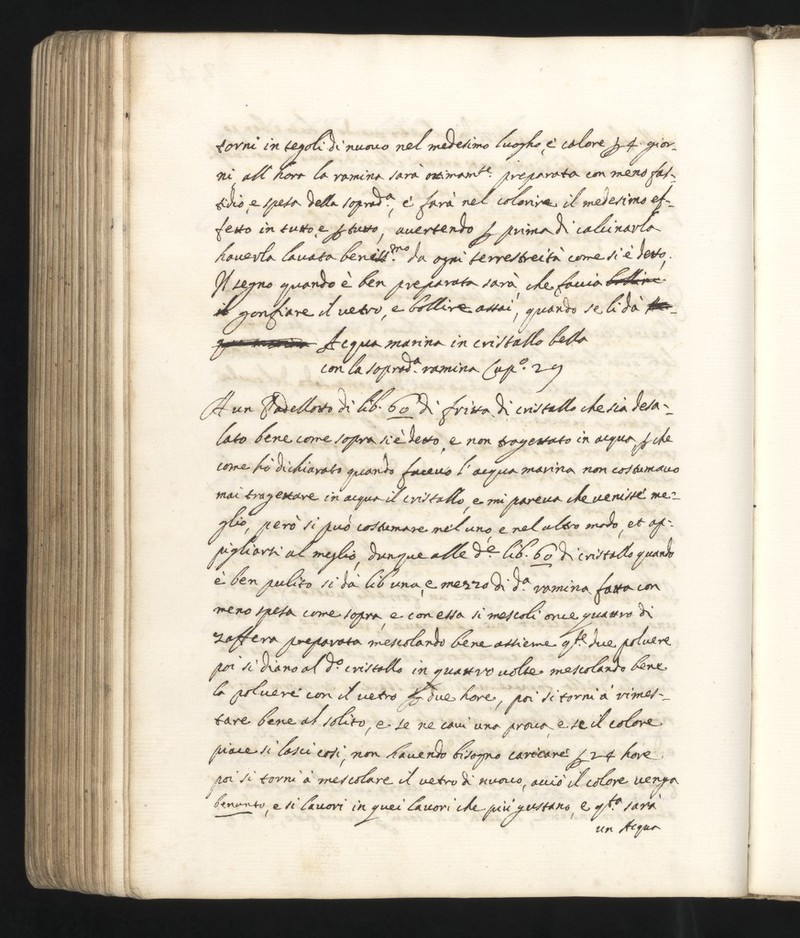 torni in tegoli di nuovo nel medesimo luogho, è calore p 4 gior-
ni all' hora la ramina sarà ottimamte. preparata con meno fas-
tidio, e spesa della sopradª., é farà nel colorire il medesimo ef-
fetto in tutto, e p tutto, avertendo p prima di calcinarla
haverla lavata beniss.mo da ogni terrestreità come si è detto.
Il segno quando è ben preparata sarà, che faccia bollire
il gonfiare il vetro, e bollire assai, quando se li dà
Acqua marina in cristallo bella
con la sopradª. ramina Cap.º 29
A un Padellotto di lib. 60 di fritta di cristallo che sia desa-
lato bene come sopra si è detto, e non tragettato in acqua, p che
come hò dichiarato quando facevo l' acqua marina non costumavo
mai tragettare in acqua il cristallo, e mi pareva che venisse me-
glio, però si può costumare nel' uno, e nel altro modo, et ap-
pigliarsi al meglio, dunque alle d.e lib. 60 di cristallo quando
è ben pulito si dà lib una, e mezzo di d.a ramina fatta con
meno spesa come sopra, e con essa si mescoli once quattro di
zaffera preparata mescolando bene assieme q.te due polvere
poi si diano al d.º cristallo in quattro volte mescolando bene
la polvere con il vetro p due hore, poi si torni à rimes-
tare bene al solito, e se ne cavi una prova, e se il colore
piace si lasci così, non havendo bisogno caricare p 24 hore
poi si torni à mescolare il vetro di nuovo, acciò il colore venga
benunto, e si lavori in quei lavori che più gustano, e q.ta sarà
un Acqua